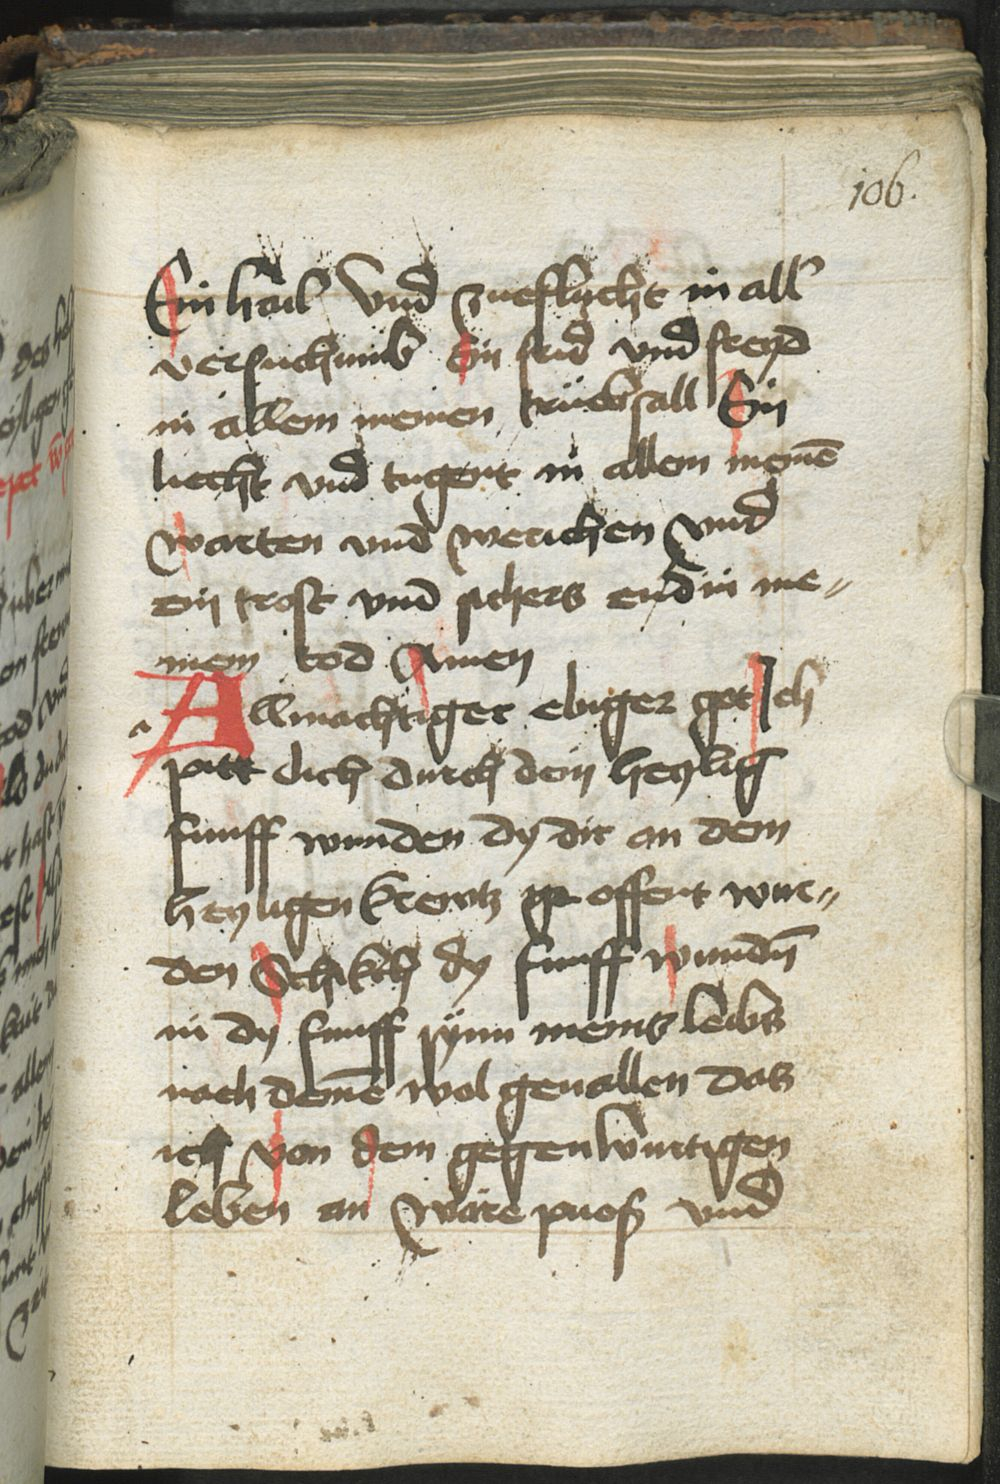 106.
Ein hail Vnd zueflucht in all
versuchnub Ein frid vnd freyd
in allem meinen trübsall Ein
liecht vnd tugent in allem meinē
warten vnd werichen Vnd
ein trost vnd sichers end in me-
inem tod Amen
Allmachtiger ebiger got Ich
pitt dich durch dein heylig
funff wunden dy dir an dem
heyligen krewtz geoffent wur-
den Schikch dy funff wundn̄
in dy funff synn meins leibs
nach deinē wol geuallen das
ich von dem gegenburtigen
leben an ware puoß vnd